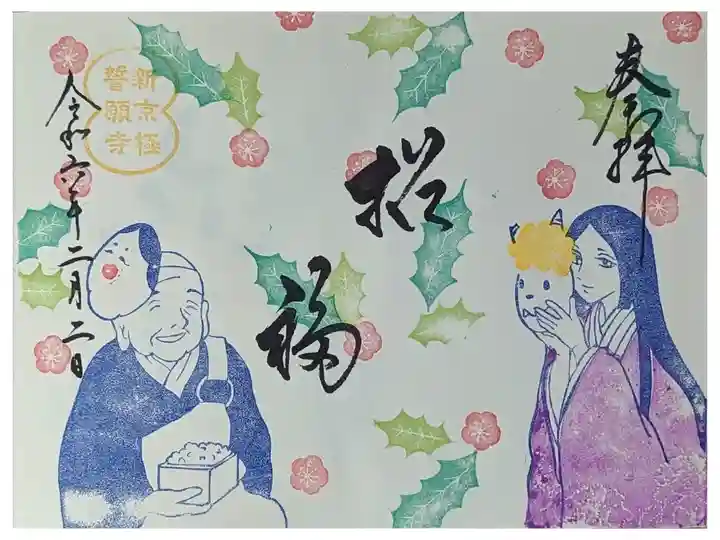 奉拝
招福
令和六年二月二日
新京極
誓願寺